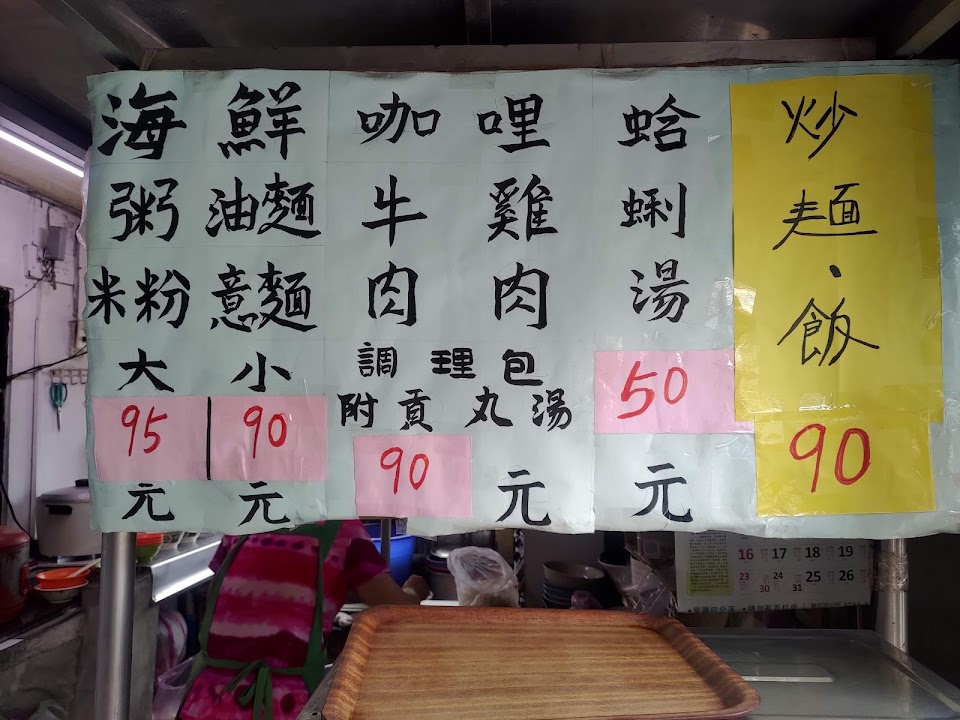 海鮮
粥 油麵
米粉 意麵
大 小
95 90
元 元
咖哩
牛雞
肉肉
調理包
附貢丸湯
90元
蛤
蜊
湯
50
元
炒
麵
·
飯
90
16 17 18 19
23 24 25 26
30 31